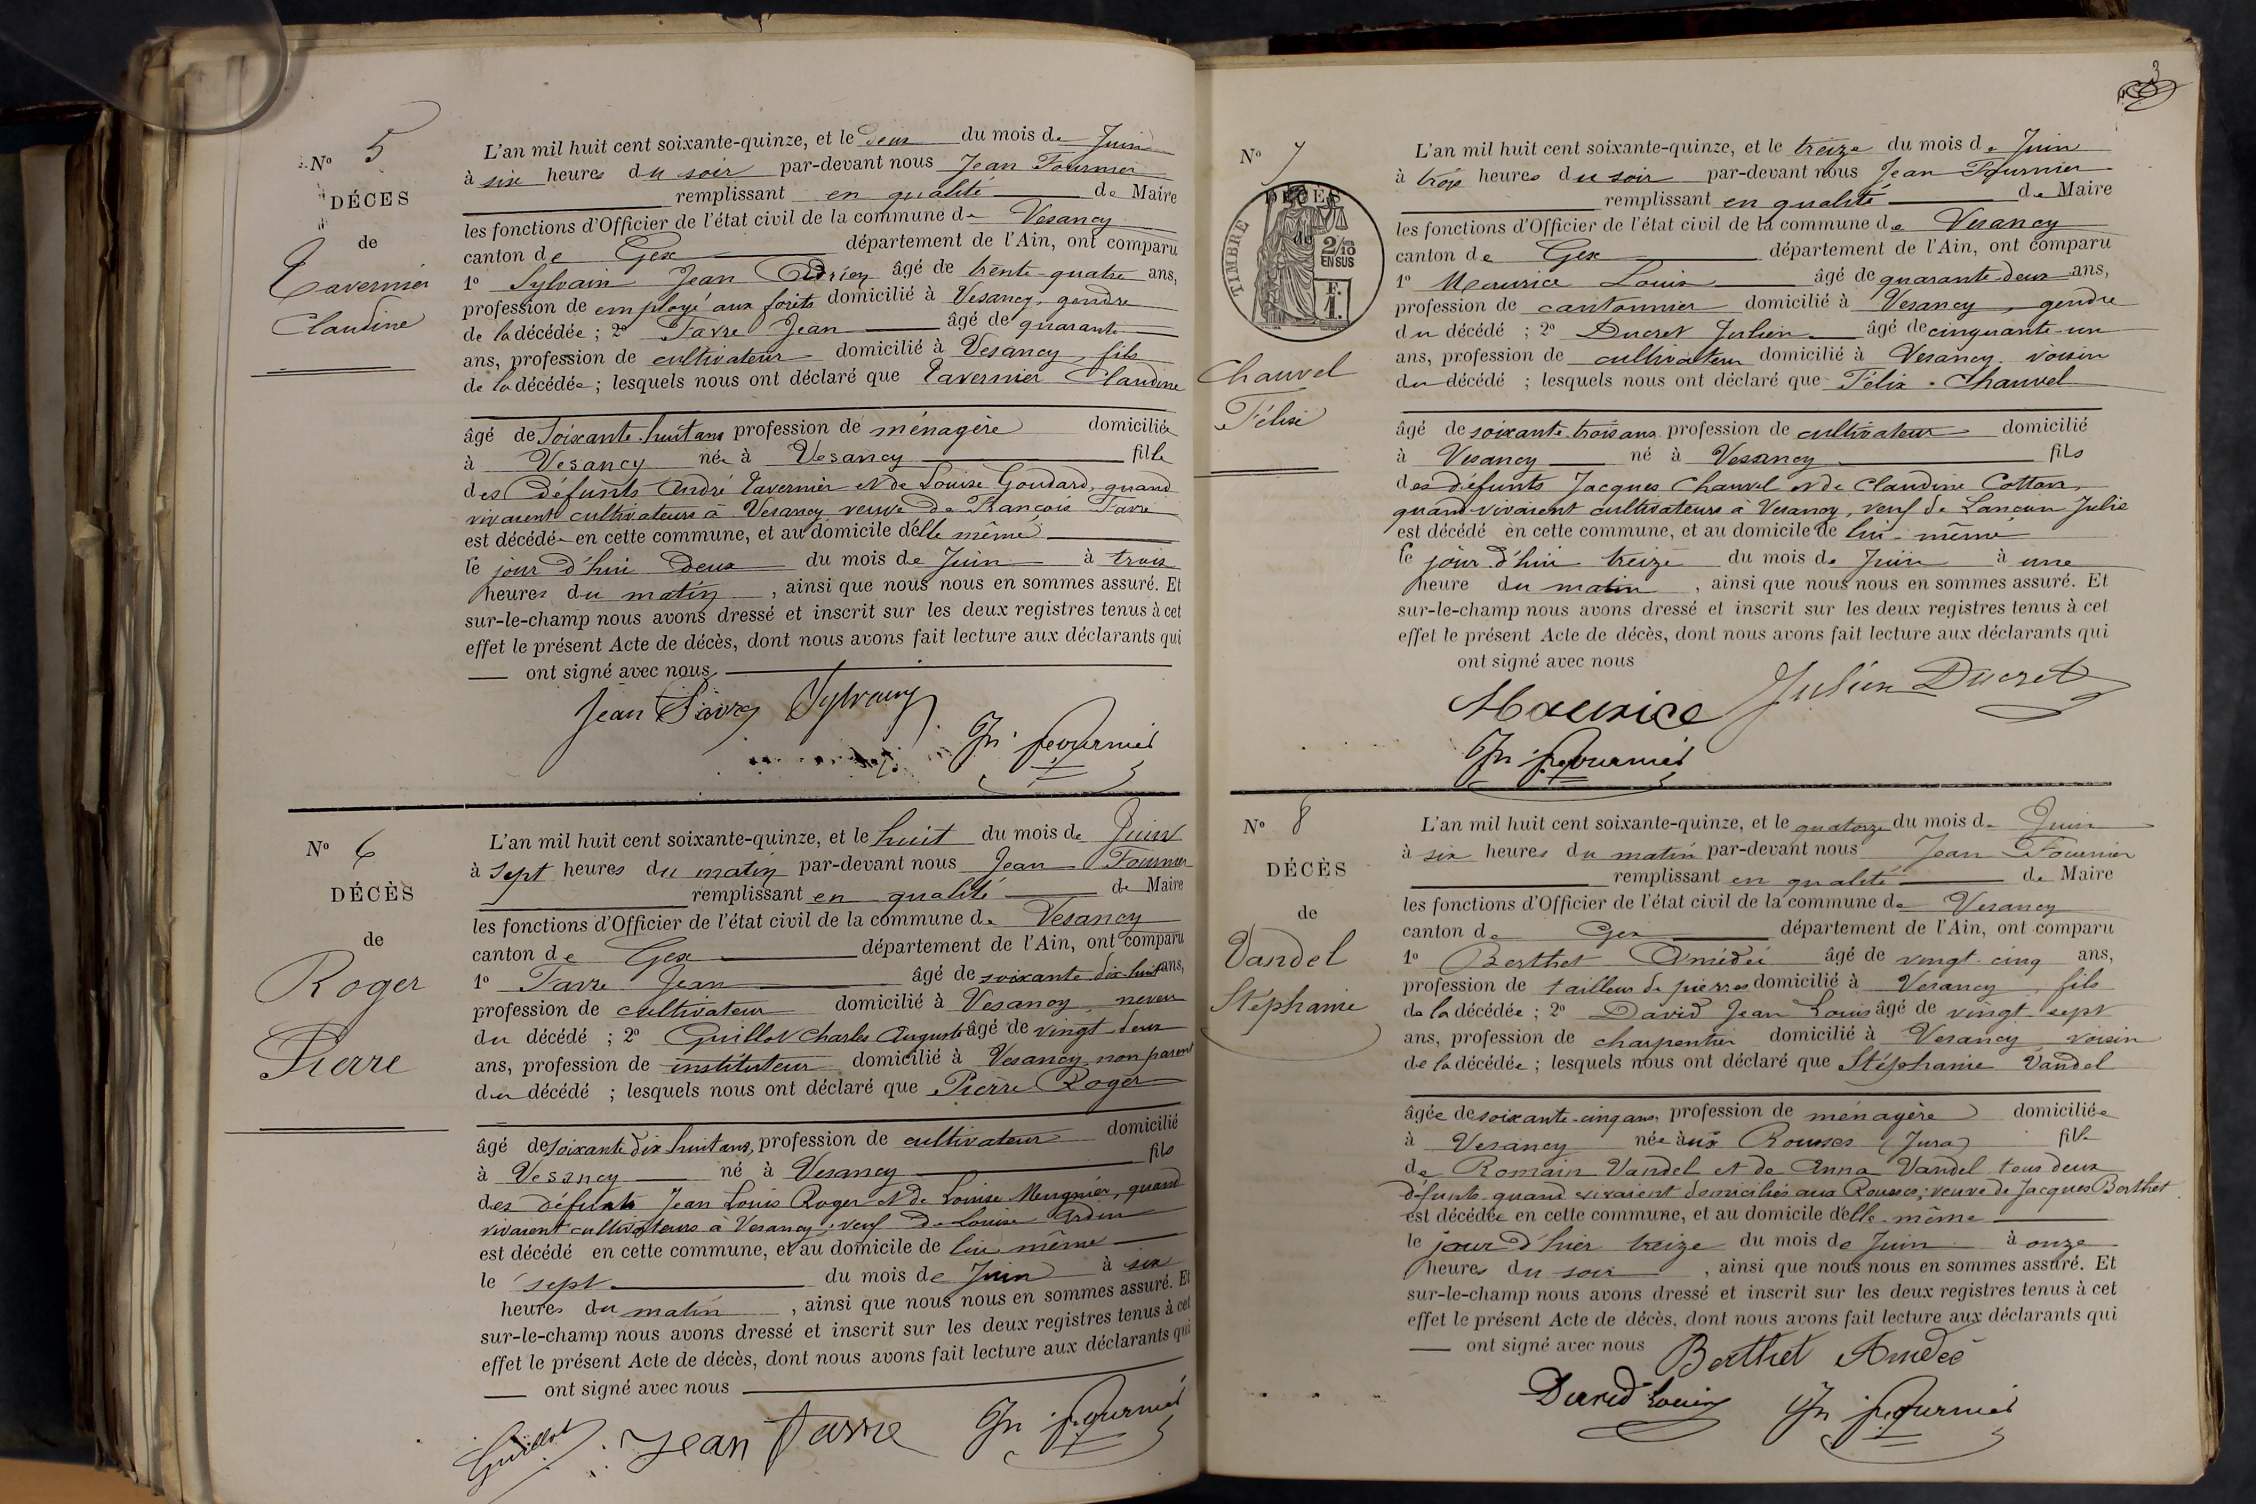 Nº 5
DÉCES
de
Tavernier
Claudine
L'an mil huit cent soixante-quinze, et le deux du mois de Juin
à six heures du soir par-devant nous Jean Fournier
remplissant en qualité de Maire
les fonctions d'Officier de l'état civil de la commune de Vesancy
canton de Gex département de l'Ain, ont comparu
1º Sylvain Jean Adrien âgé de trente-quatre ans,
profession de employé aux forêts domicilié à Vesancy, gendre
de la décédée ; 2º Favre Jean âgé de quarante
ans, profession de cultivateur domicilié à Vesancy, fils
de la décédée ; lesquels nous ont déclaré que Tavernier Claudine
âgé de soixante-huit ans profession de ménagère domiciliée
à Vesancy née à Vesancy fille
des défunts André Tavernier et de Louise Goudard, quand
vivaient cultivateurs à Vesancy veuve de François Favre
est décédée en cette commune, et au domicile d'elle même
le jour d'hui deux du mois de Juin à trois
heures du matin, ainsi que nous nous en sommes assuré. Et
sur-le-champ nous avons dressé et inscrit sur les deux registres tenus à cet
effet le présent Acte de décès, dont nous avons fait lecture aux déclarants qui
ont signé avec nous
Jean Favre Sylvain
Jn fournier
Nº 6
DÉCÈS
de
Roger
Pierre
L'an mil huit cent soixante-quinze, et le huit du mois de Juin
à sept heures du matin par-devant nous Jean Fournier
remplissant en qualité de Maire
les fonctions d'Officier de l'état civil de la commune de Vesancy
canton de Gex département de l'Ain, ont comparu
1º Favre Jean âgé de soixante-dix-huit ans,
profession de cultivateur domicilié à Vesancy, neveu
du décédé ; 2º Guillot Charles Auguste âgé de vingt-deux
ans, profession de instituteur domicilié à Vesancy, non parent
du décédé ; lesquels nous ont déclaré que Pierre Roger
âgé de soixante dix huit ans, profession de cultivateur domicilié
à Vesancy né à Vesancy fils
des défunts Jean Louis Roger et de Louise Meugnier, quand
vivaient cultivateurs à Vesancy, veuf de Louise
est décédé en cette commune, et au domicile de lui même
le sept du mois de Juin à six
heures du matin, ainsi que nous nous en sommes assuré. Et
sur-le-champ nous avons dressé et inscrit sur les deux registres tenus à cet
effet le présent Acte de décès, dont nous avons fait lecture aux déclarants qui
ont signé avec nous
Guillot Jean Favre Jn fournier
3
Nº 7
DÉCÈS
de
TIMBRE
2/10
EN SUS
F.
1.
Chauvel
Félix
L'an mil huit cent soixante-quinze, et le treize du mois de Juin
à trois heures du soir par-devant nous Jean Fournier
remplissant en qualité de Maire
les fonctions d'Officier de l'état civil de la commune de Vesancy
canton de Gex département de l'Ain, ont comparu
1º Maurice Louis âgé de quarante-deux ans,
profession de cantonnier domicilié à Vesancy, gendre
du décédé ; 2º Ducret Julien âgé de cinquante-un
ans, profession de cultivateur domicilié à Vesancy voisin
du décédé ; lesquels nous ont déclaré que Félix Chauvel
âgé de soixante-trois ans profession de cultivateur domicilié
à Vesancy né à Vesancy fils
des défunts Jacques Chauvel et de Claudine Cottan,
quand vivaient cultivateurs à Vesancy, veuf de Lançon Julie
est décédé en cette commune, et au domicile de lui-même
le jour d'hui treize du mois de Juin à une
heure du matin, ainsi que nous nous en sommes assuré. Et
sur-le-champ nous avons dressé et inscrit sur les deux registres tenus à cet
effet le présent Acte de décès, dont nous avons fait lecture aux déclarants qui
ont signé avec nous
Maurice Julien Ducret
Jn fournier
Nº 8
DÉCÈS
de
Vandel
Stéphanie
L'an mil huit cent soixante-quinze, et le quatorze du mois de Juin
à six heures du matin par-devant nous Jean Fournier
remplissant en qualité de Maire
les fonctions d'Officier de l'état civil de la commune de Vesancy
canton de Gex département de l'Ain, ont comparu
1º Berthet Amédée âgé de vingt-cinq ans,
profession de tailleur de pierres domicilié à Vesancy, fils
de la décédée ; 2º David Jean Louis âgé de vingt-sept
ans, profession de charpentier domicilié à Vesancy voisin
de la décédée ; lesquels nous ont déclaré que Stéphanie Vandel
âgée de soixante-cinq ans, profession de ménagère domiciliée
à Vesancy née aux Rousses (Jura) fille
de Romain Vandel et de Anna Vandel tous deux
défunts quand vivaient domiciliés aux Rousses, veuve de Jacques Berthet
est décédée en cette commune, et au domicile d'elle-même
le jour d'hier treize du mois de Juin à onze
heures du soir, ainsi que nous nous en sommes assuré. Et
sur-le-champ nous avons dressé et inscrit sur les deux registres tenus à cet
effet le présent Acte de décès, dont nous avons fait lecture aux déclarants qui
ont signé avec nous
Berthet Amédée
David Louis Jn fournier